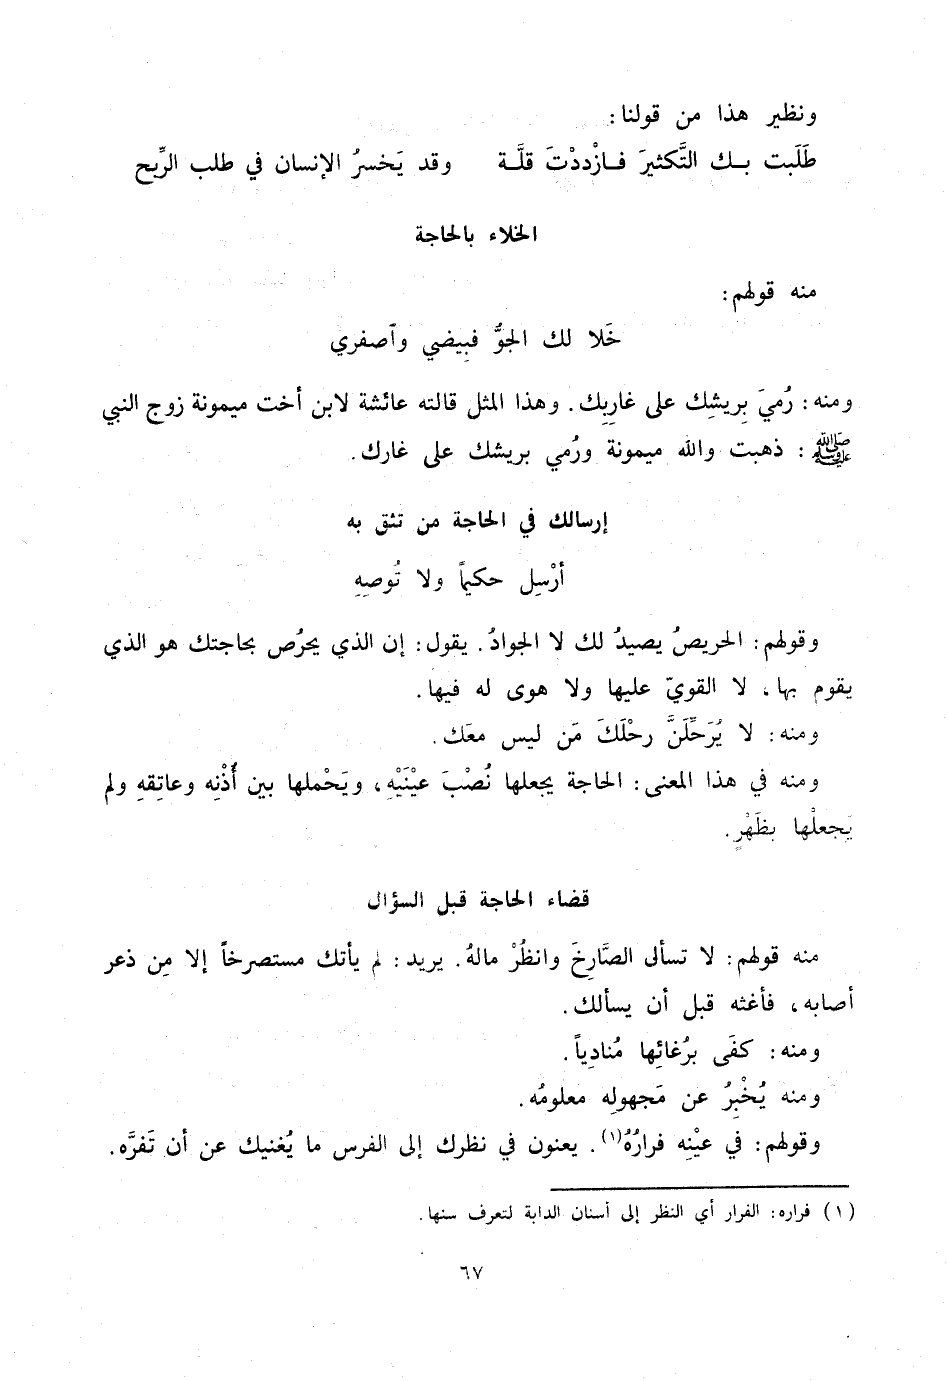 ونظير هذا من قولنا:
طَلَبت بـك التَّكثيرَ فـازْددْتَ قلَّـة وقد يَخسرُ الإنسان في طلب الرِّبح
الخلاء بالحاجة
منه قولهم:
خَلا لك الجوُّ فبِيضي وآصفري
ومنه: رُميَ بِريشِك على غارِبِك. وهذا المثل قالته عائشة لابن أخت ميمونة زوج النبي
ﷺ: ذهبت والله ميمونة ورُمي بريشك على غارك.
إرسالك في الحاجة من تثق به
أرْسِل حكيماً ولا تُوصِهِ
وقولهم: الحريصُ يصيدُ لك لا الجوادُ. يقول: إن الذي يحرُص بحاجتك هو الذي
يقوم بها، لا القويّ عليها ولا هوى له فيها.
ومنه: لا يُرَحِّلَنَّ رحْلَكَ مَن ليس معَك.
ومنه في هذا المعنى: الحاجة يجعلها نُصْبَ عيْنَيْهِ، ويَحْملها بين أُذْنِه وعاتِقهِ ولم
يَجعلْها بظَهْرٍ.
قضاء الحاجة قبل السؤال
منه قولهم: لا تسأل الصَّارِخَ وانظُرْ مالهُ. يريد: لم يأتك مستصرخاً إلا مِن ذعر
أصابه، فأغثه قبل أن يسألك.
ومنه: كفَى برُغائِها مُنادِياً.
ومنه يُخْبِرُ عن مَجهولِه معلومُه.
وقولهم: في عيْنِه فرارُهُ(١). يعنون في نظرك إلى الفرس ما يُغنيك عن أن تَفرَّه.
(١) فراره: الفرار أي النظر إلى أسنان الدابة لتعرف سنها.
٦٧